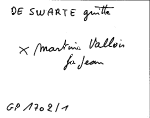 DE SWARTE guitte
x Martine Vallois
fa Jean
GP 1702/1